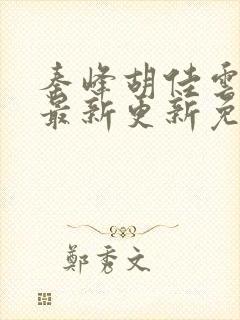 秦峰胡佳雲
最新更新免
鄭秀文